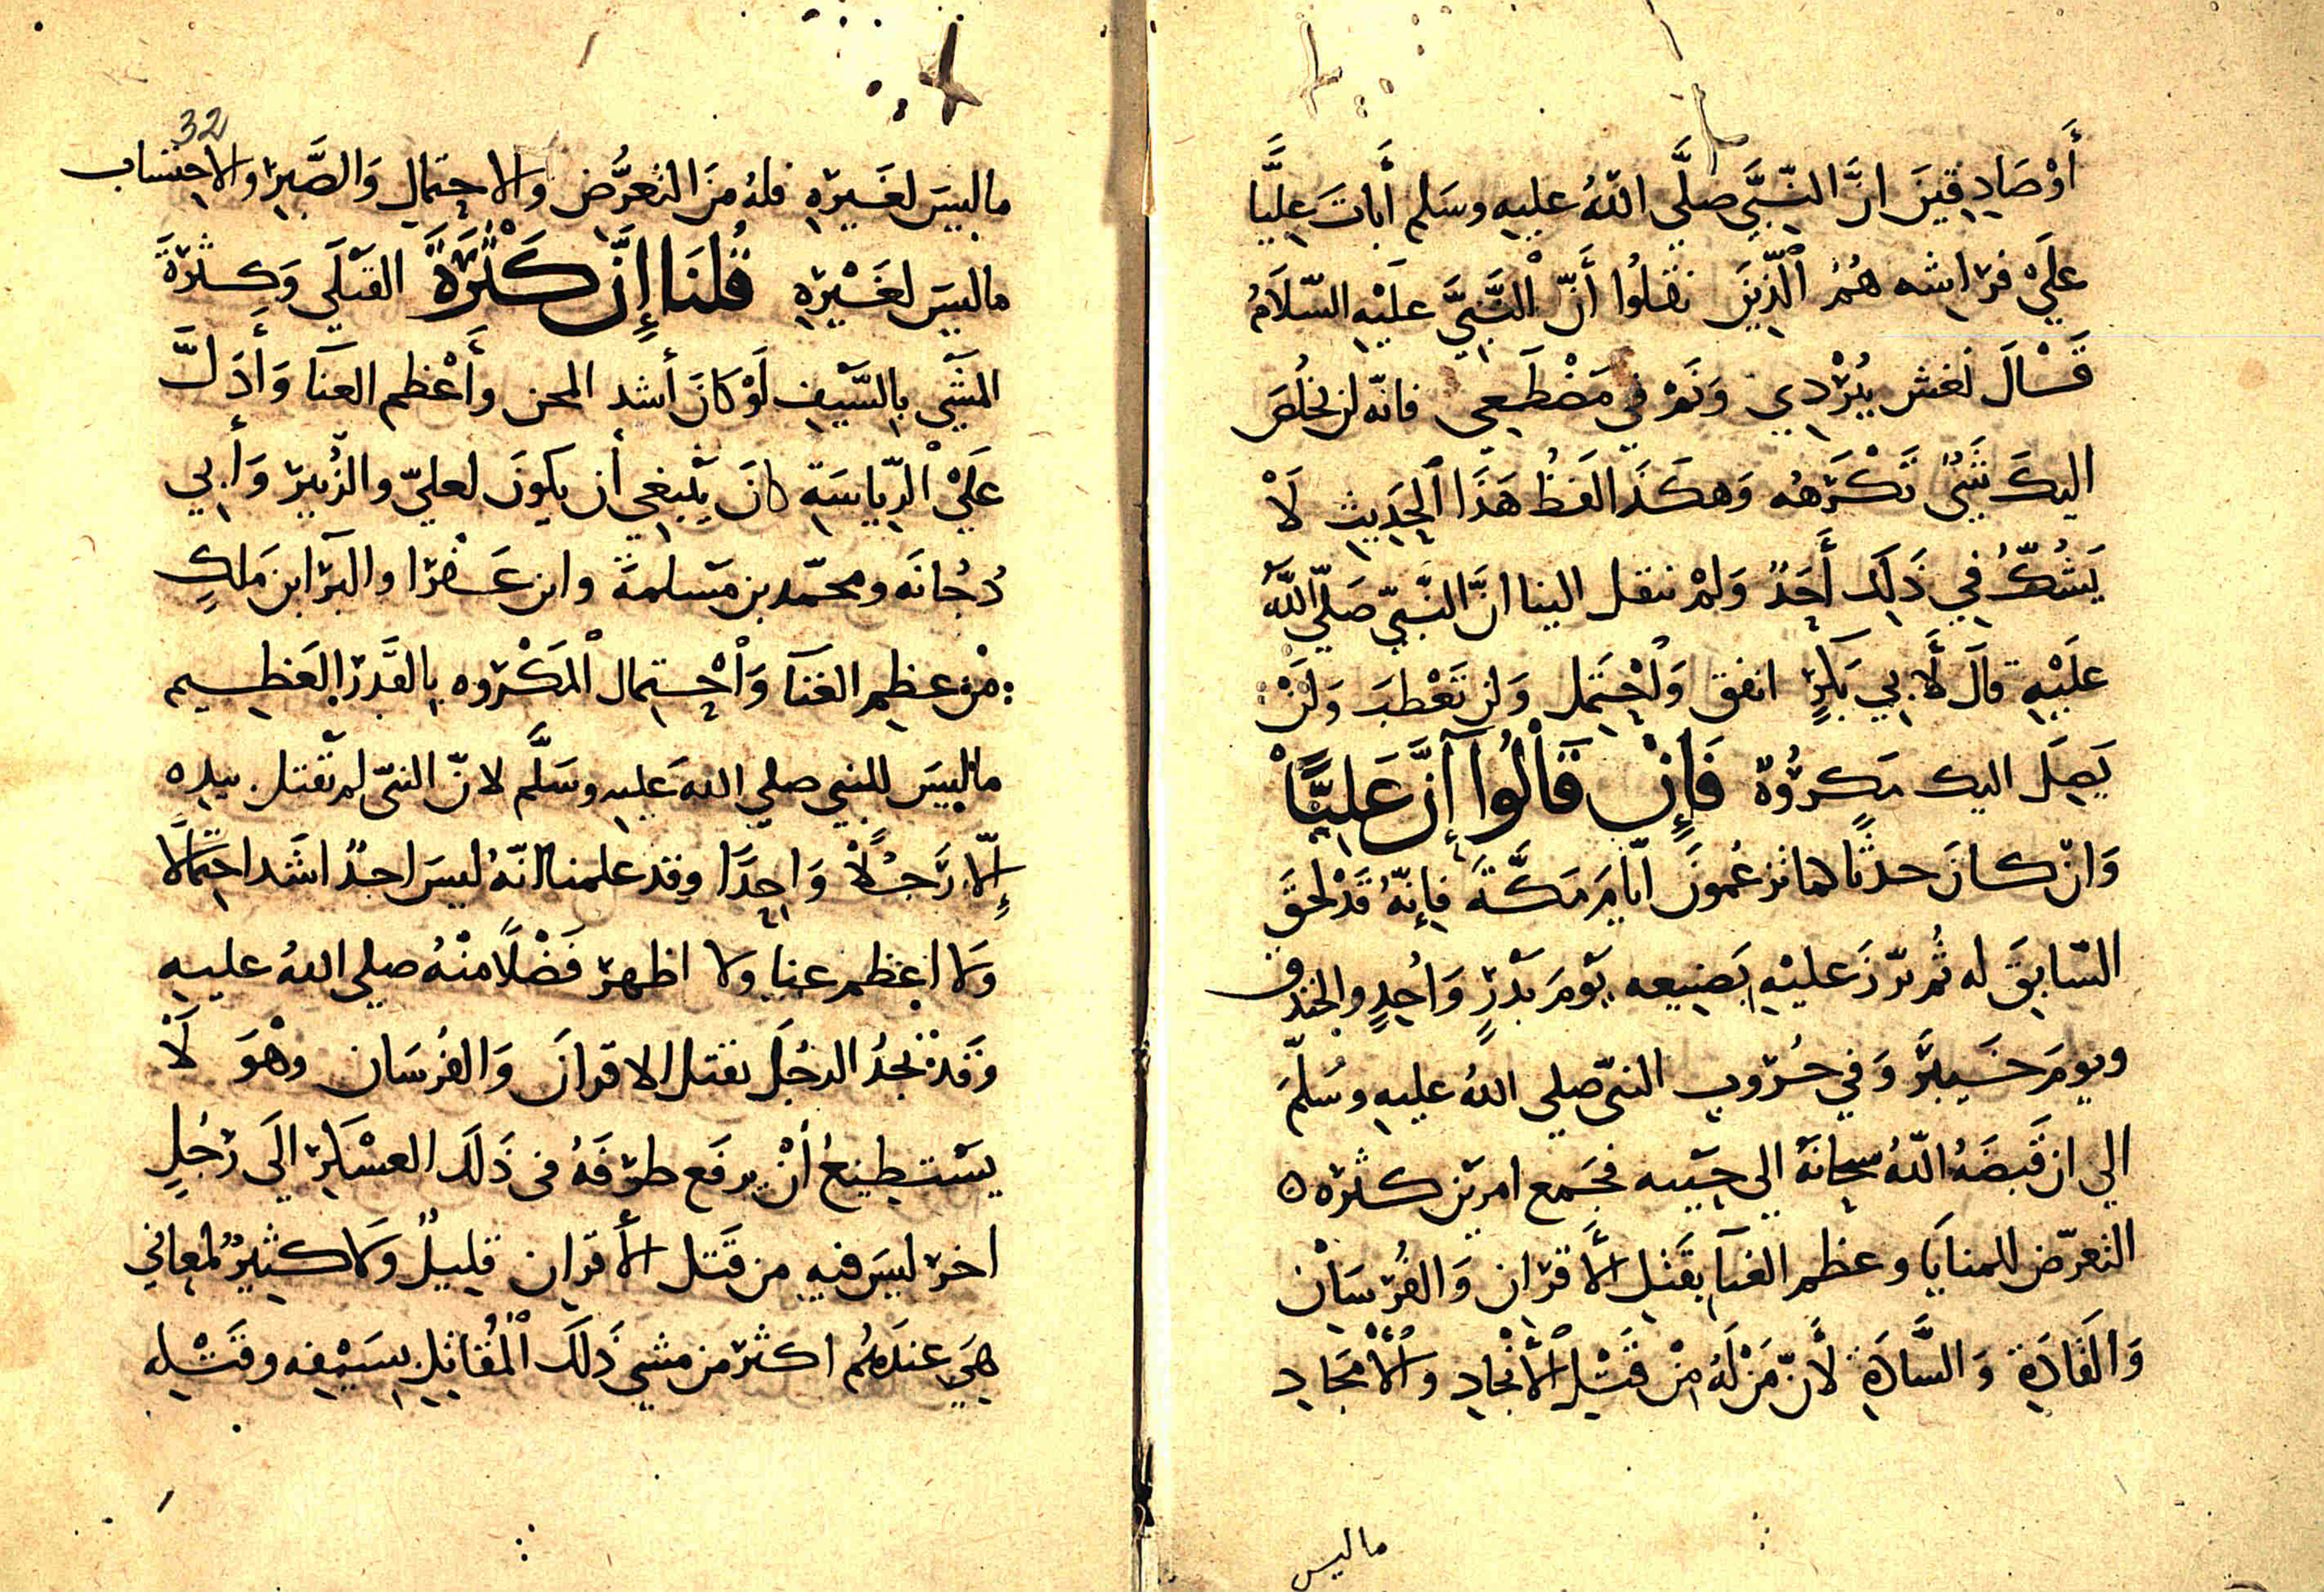 أَوْ صَادِقِينَ انَّ النَّبِيَّ صلَّى اللّهُ عليهِ وسَلم أَبَاتَ عَلِيًّا
عَلَيْ فرَاشه هُمُ الَّذِيْنَ نقلُوا أَنّ النَّبِيَّ عليْهِ السّلَامُ
قَالَ تغش ببُرْدِي وَنَمْ فِي مَضْطَجعِي فانّه لن يخلُصَ
اليكَ شَيْءٌ تَكْرَهُه وَهكَذَا لفظُ هَذَا الحَدِيثِ لَا
يَشُكُّ فِي ذَلِكَ أَحَدٌ وَلَمْ ننقل الينا انَّ النَّبيّ صَلّي اللَّه
علَيْهِ قالَ لأَبِي بَكرٍ انفق وَاحْتَمل وَلن تَعْطبَ وَلَنْ
يَصِلَ اليك مَكرُوهٌ فَإِنْ قَالُوا إِنَّ عَلِيًّا
وَانْ كانَ حدثًا كما تزعُمونَ ايّامَ مَكَّةَ فإِنّهُ قَدْ لحقَ
السّابِقَ له ثُمّ برّزَ عليْهِ بِصَنِيعه يَوْمَ بَدْرٍ وَأُحدٍ والخندق
ويومَ خَيبَرَ وَفِي حُرُوبِ النبيّ صلي اللهُ عليهِ وسَلّمَ
الي ان قَبضَهُ اللّهُ سبحانَهُ الى جَنّته فجَمع امرين كثرة
التعرّض للمنايَا وعظم الغنآ بِقَتلِ الأَقرَان وَالفُرْسَانِ
وَالقَادَةِ وَالسَّادَةِ لأَنّ مَنْ لَهُ مِنْ قَتْلِ الأَنْجَادِ وَالأَمْجَادِ
ما ليس
32
ما ليسَ لغَيرِهِ فلهُ مِنَ التعَرُّض وَالاحتمالِ وَالصَّبرِ وَالاحتسابِ
ما ليسَ لغَيْرِهِ قُلنَا إِنَّ كَثْرَةَ القَتْلَي وَكثْرَةَ
المَشْي بِالسَّيفِ لَوْ كَانَ أشد المحن وأَعْظم العنآ وَأَدَلَّ
عَلَيْ الرِّيَاسَةِ كانَ يَنْبَغِي أن يكونَ لعليّ والزُّبيرْ وَأَبِي
دُجُانَه ومحمّد بن مَسْلمَة وابن عَفْرَا والبرآ ابن مَلكٍ
مِنْ عظِيم الغنَآ وَاحْتمال الْمَكْرُوه بِالقَدْرِ العَظِيم
ما ليسَ للنبي صلي الله عَليهِ وسَلَّم لانّ النبيّ لم يَقتل بيده
إِلّا رَجُلاً وَاحِدًا وقد علمنا انّهُ ليسَ احدٌ اشَد احتمالًا
وَلا اعظم عنا وَلا اظهرْ فَضْلًا منْهُ صلى اللهُ عليهِ
وَقَدْ نجدُ الرجُلَ يقتل الاقرانَ وَالفُرسَان وهْوَ لَا
يسْتَطِيعُ أنْ يرفَع طرْفَهُ فى ذَلكَ العسْكرِ الَى رَجُلٍ
اخر ليسَ فيهِ مِن قَتل الأَقرانِ قليلٌ وَلا كَثِيرٌ لمعانِي
هِيَ عندَهُم اكثرْ مِن مَشي ذَلكَ الْمُقَاتِلِ بِسَيْفِه وقَتْلِه